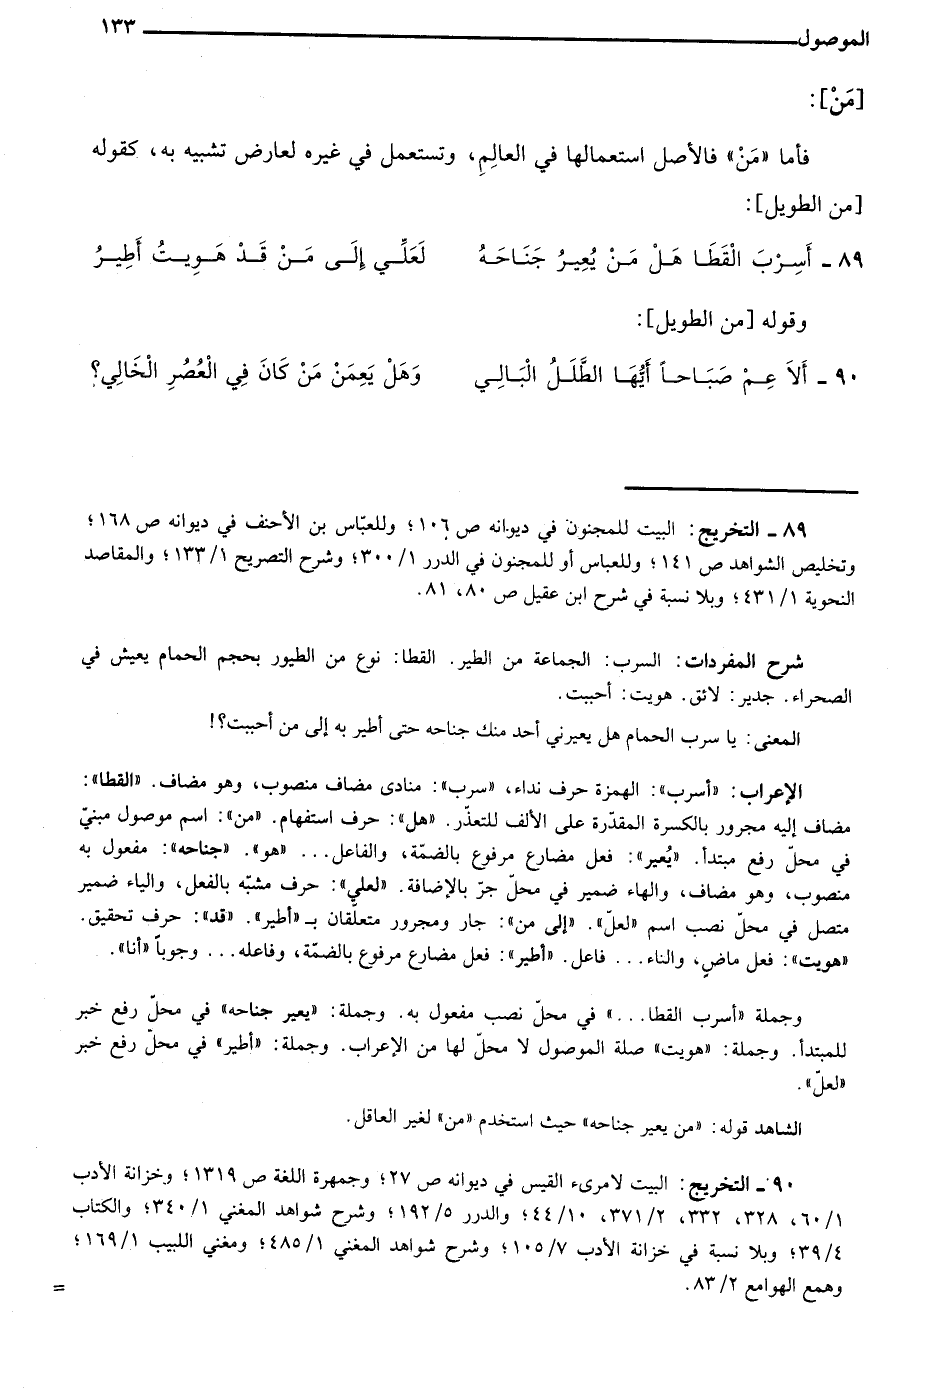 الموصول ١٣٣
[مَنْ]:
فأما «مَنْ» فالأصل استعمالها في العالِمِ، وتستعمل في غيره لعارض تشبيه به، كقوله
[من الطويل]:
٨٩ - أَسِرْبَ الْقَطَا هَلْ مَنْ يُعِيرُ جَنَاحَهُ لَعَلِّي إِلَى مَنْ قَدْ هَوِيتُ أَطِيرُ
وقوله [من الطويل]:
٩٠ - أَلاَ عِمْ صَبَاحاً أَيُّهَا الطَّلَلُ الْبَالِي وَهَلْ يَعِمَنْ مَنْ كَانَ فِي الْعُصُرِ الْخَالِي؟
٨٩ - التخريج: البيت للمجنون في ديوانه ص ١٠٦؛ وللعبّاس بن الأحنف في ديوانه ص ١٦٨؛
وتخليص الشواهد ص ١٤١؛ وللعباس أو للمجنون في الدرر ١/ ٣٠٠؛ وشرح التصريح ١/ ١٣٣؛ والمقاصد
النحوية ١/ ٤٣١؛ وبلا نسبة في شرح ابن عقيل ص ٨٠، ٨١.
شرح المفردات: السرب: الجماعة من الطير. القطا: نوع من الطيور بحجم الحمام يعيش في
الصحراء. جدير: لائق. هويت: أحببت.
المعنى: يا سرب الحمام هل يعيرني أحد منك جناحه حتى أطير به إلى من أحببت؟!
الإعراب: «أسرب»: الهمزة حرف نداء، «سرب»: منادى مضاف منصوب، وهو مضاف. «القطا»:
مضاف إليه مجرور بالكسرة المقدّرة على الألف للتعذّر. «هل»: حرف استفهام. «من»: اسم موصول مبنيّ
في محلّ رفع مبتدأ. «يُعير»: فعل مضارع مرفوع بالضمّة، والفاعل... «هو». «جناحه»: مفعول به
منصوب، وهو مضاف، والهاء ضمير في محلّ جرّ بالإضافة. «لعلي»: حرف مشبّه بالفعل، والياء ضمير
متصل في محلّ نصب اسم «لعلّ». «إلى من»: جار ومجرور متعلّقان بـ «أطير». «قد»: حرف تحقيق.
«هويت»: فعل ماضٍ، والتاء... فاعل. «أطير»: فعل مضارع مرفوع بالضمّة، وفاعله... وجوباً «أنا».
وجملة «أسرب القطا...» في محلّ نصب مفعول به. وجملة: «يعير جناحه» في محلّ رفع خبر
للمبتدأ. وجملة: «هويت» صلة الموصول لا محلّ لها من الإعراب. وجملة: «أطير» في محلّ رفع خبر
«لعلّ».
الشاهد قوله: «من يعير جناحه» حيث استخدم «من» لغير العاقل.
٩٠ - التخريج: البيت لامرىء القيس في ديوانه ص ٢٧؛ وجمهرة اللغة ص ١٣١٩؛ وخزانة الأدب
١/ ٦٠، ٣٢٨، ٣٣٢، ٢/ ٣٧١، ١٠/ ٤٤؛ والدرر ٥/ ١٩٢؛ وشرح شواهد المغني ١/ ٣٤٠؛ والكتاب
٤/ ٣٩؛ وبلا نسبة في خزانة الأدب ٧/ ١٠٥؛ وشرح شواهد المغني ١/ ٤٨٥؛ ومغني اللبيب ١/ ١٦٩؛
وهمع الهوامع ٢/ ٨٣. =